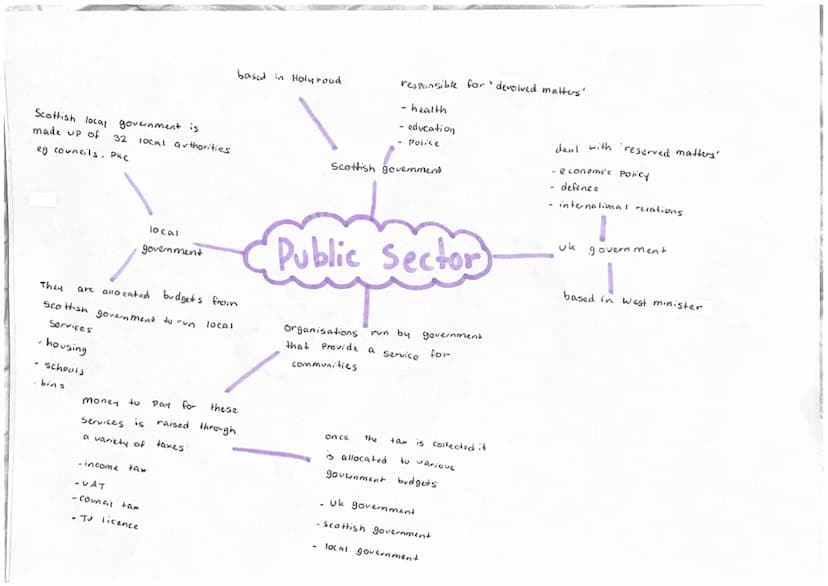 based in Holyroud
responsible for 'devolved matters'
- health
- education
- police
Scottish government
Scottish local government is
made up of 32 local authorities
eg councils, pkc
local
government
deal with 'reserved matters'
- economic policy
- defence
- international relations
uk government
based in west minister
Public Sector
They are allocated budgets from
Scottish government to run local
services
- housing
- schools
- bins
organisations run by government
that provide a service for
communities
money to pay for these
services is raised through
a variety of taxes:
- income tax
- VAT
- council tax
- TV licence
once the tax is collected it
is allocated to various
government budgets
- uk government
- scottish government
- local government